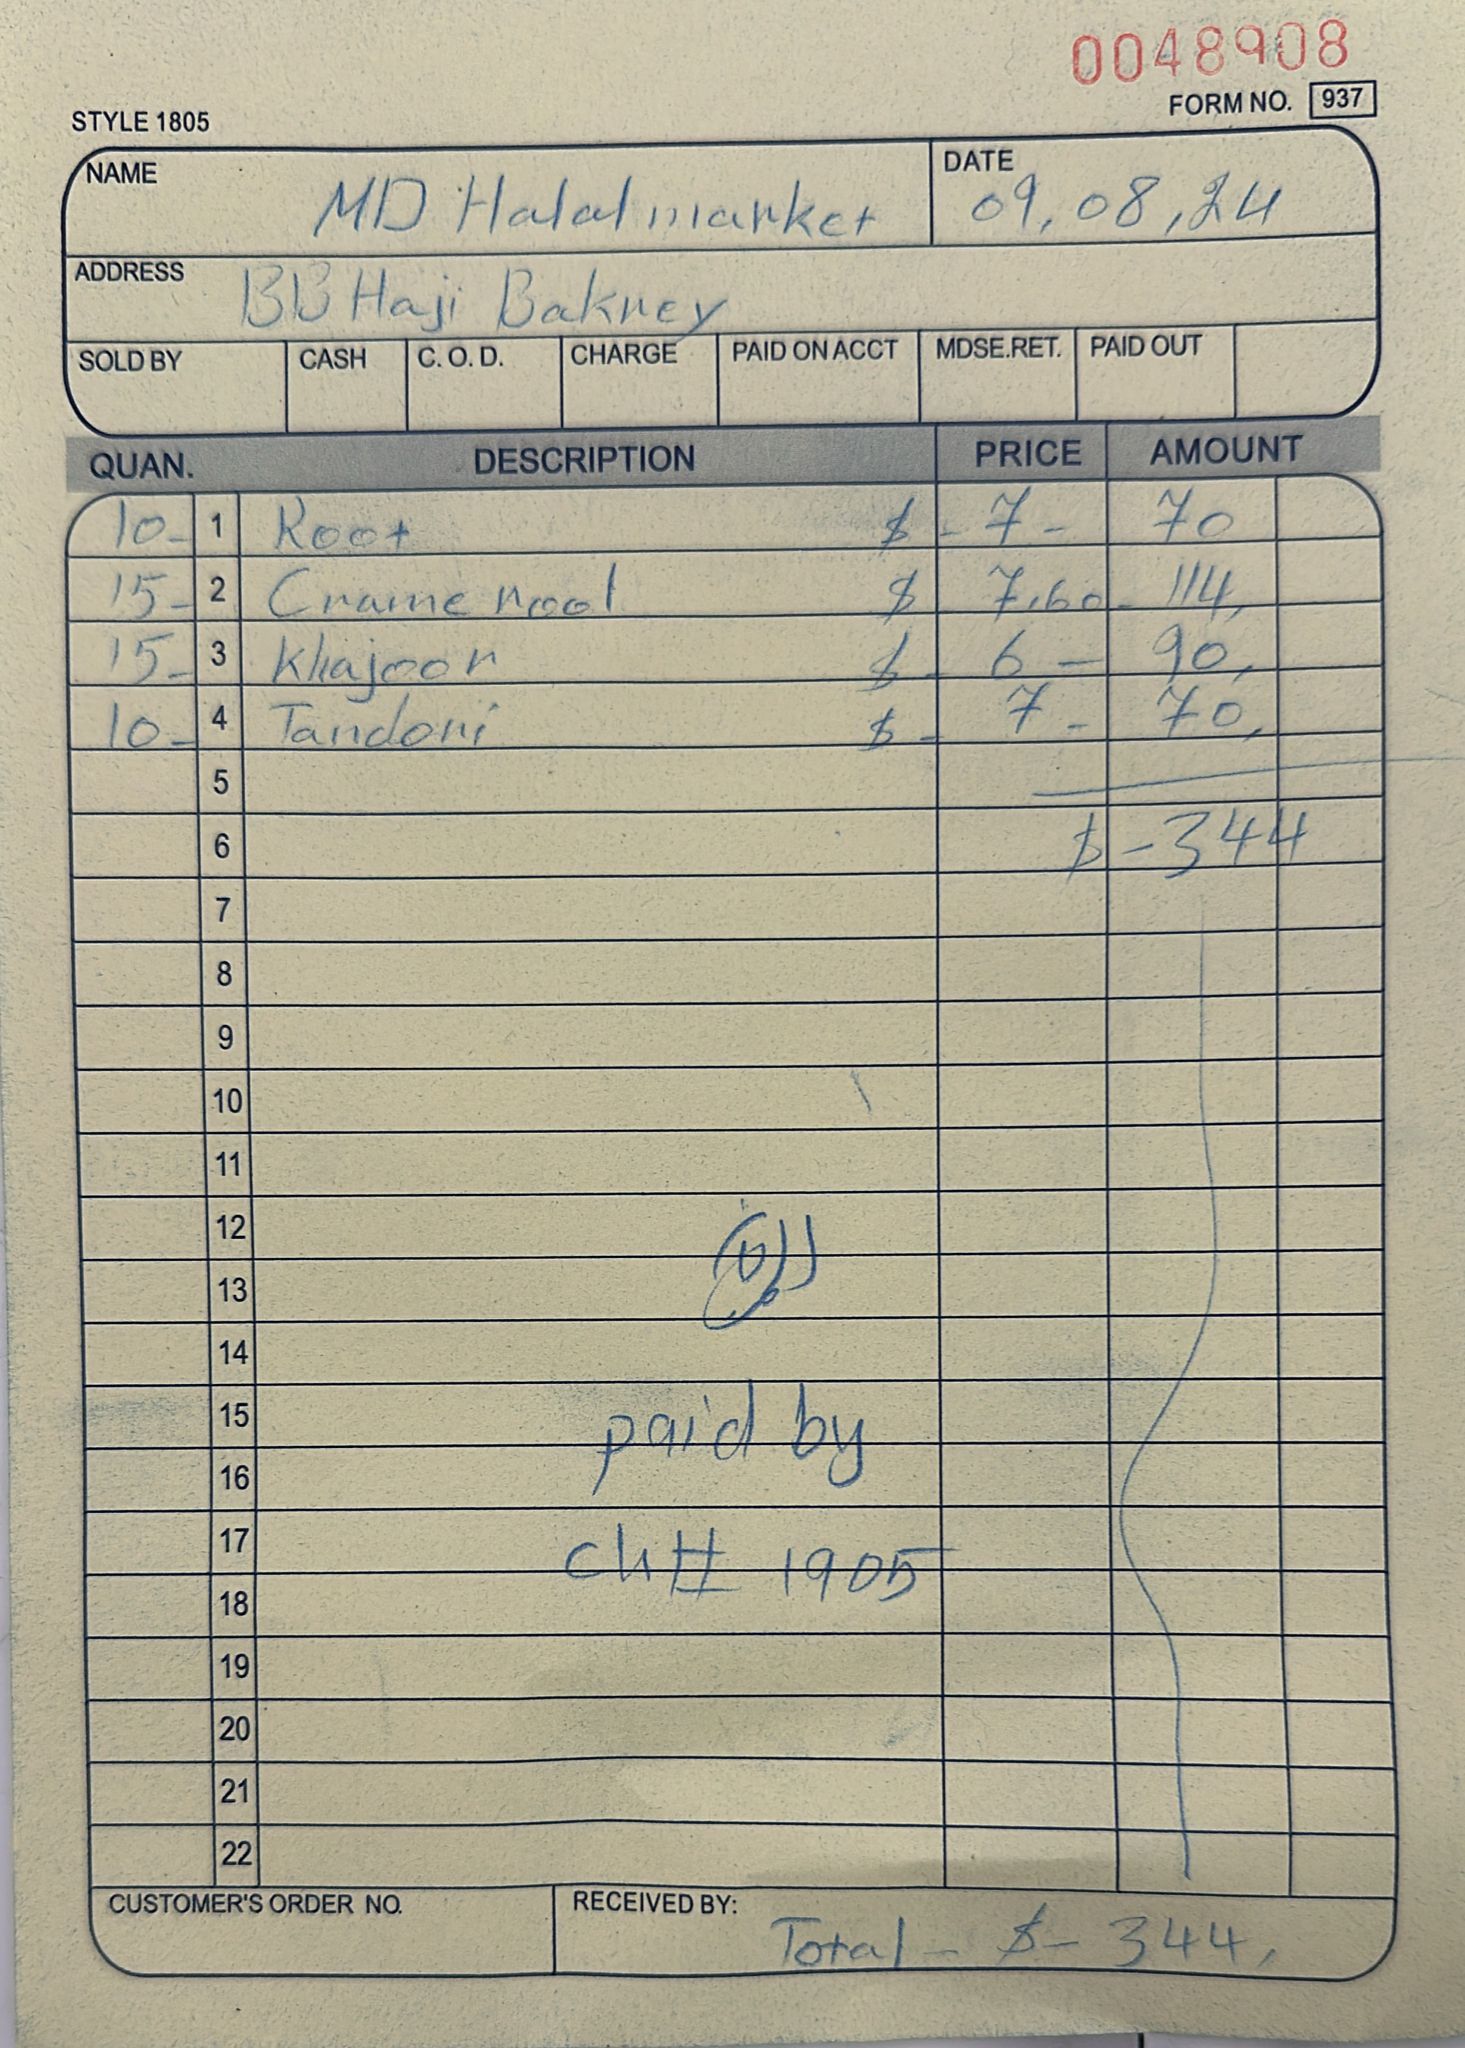 0048908
STYLE 1805
FORM NO. 937
NAME MD Halal market
DATE 09,08,24
ADDRESS BB Haji Bakney
SOLD BY CASH C. O. D. CHARGE PAID ON ACCT MDSE.RET. PAID OUT
QUAN. DESCRIPTION PRICE AMOUNT
10- 1 Root $ - 7 - 70
15- 2 Crame root $ 7,60 - 114,
15- 3 Khajoor $ - 6 - 90,
10- 4 Tandori $ - 7 - 70,
5
6 $-344
7
8
9
10
11
12
13
14
15 paid by
16
17 ch# 1905
18
19
20
21
22
CUSTOMER'S ORDER NO. RECEIVED BY:
Total - $ - 344,